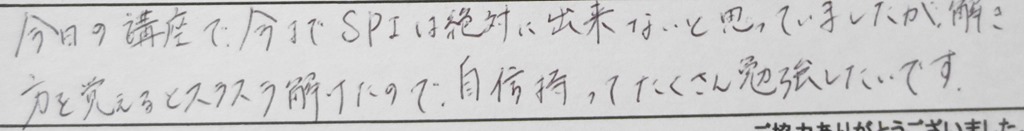 今日の講座で、今までSPIは絶対に出来ないと思っていましたが、解き
方を覚えるとスラスラ解けたので、自信持ってたくさん勉強したいです。
ご協力ありがとうございました